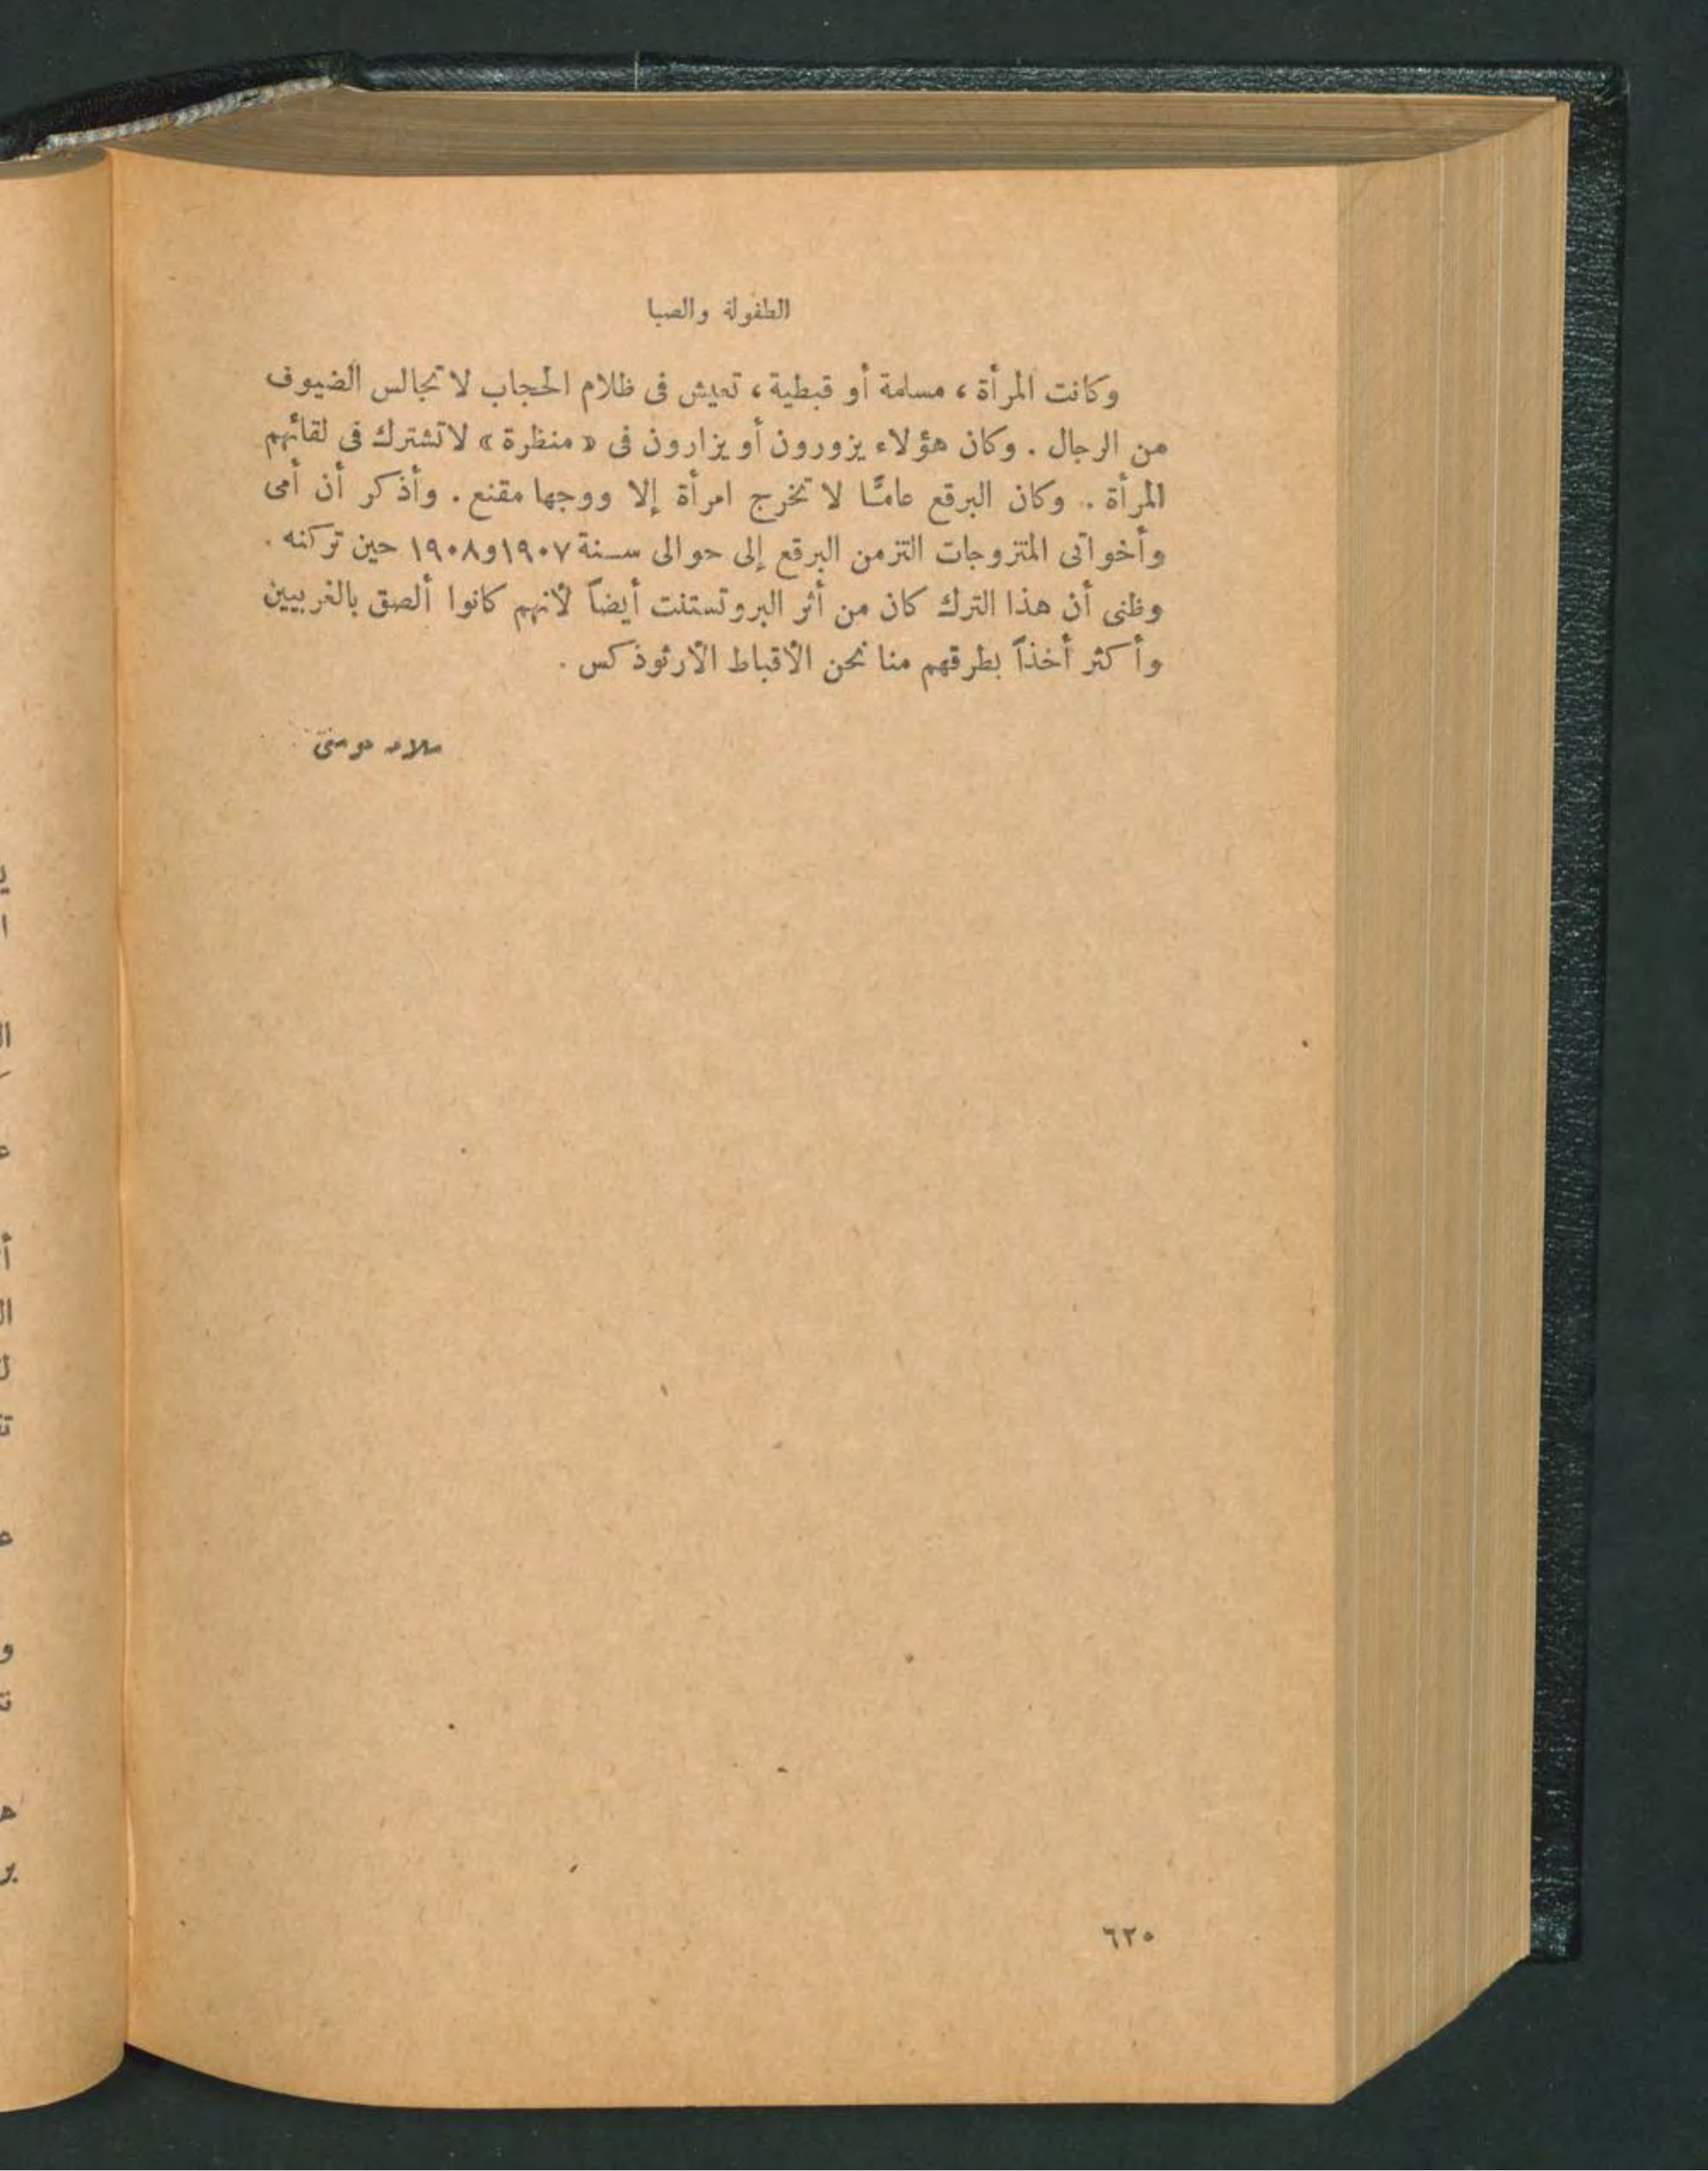 الطفولة والصبا
وكانت المرأة ، مسلمة أو قبطية ، تعيش فى ظلام الحجاب لا تجالس الضيوف
من الرجال . وكان هؤلاء يزورون أو يزارون فى « منظرة » لا تشترك فى لقائهم
المرأة .. وكان البرقع عامـًّا لا تخرج امرأة إلا ووجها مقنع . وأذكر أن أمى
وأخواتى المتزوجات التزمن البرقع إلى حوالى سـنة ١٩٠٧ و١٩٠٨ حين تركنه .
وظنى أن هذا الترك كان من أثر البروتستنت أيضاً لأنهم كانوا ألصق بالغربيين
وأكثر أخذاً بطرقهم منا نحن الأقباط الأرثوذكس .
سلامه موسى
٦٢٠